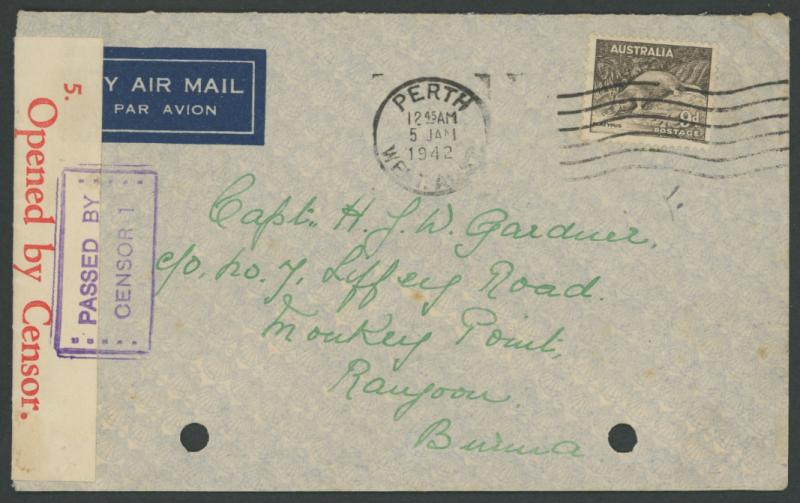 5.
Opened by Censor.
Y AIR MAIL
PAR AVION
PASSED BY
CENSOR 1
PERTH
12 45 AM
5 JAN
1942
AUSTRALIA
9d
POSTAGE
Capt. H. J. W. Gardner.
c/o. no. 7, Liffey Road.
Monkey Point,
Rangoon.
Burma